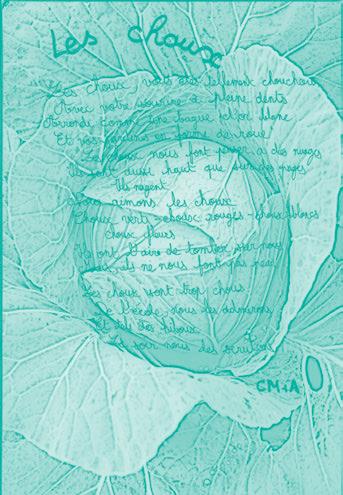 Les choux
Les choux, vous êtes tellement chouchous
Avec votre sourire à pleine dents
comme une
Et vos en forme de roue
Les choux nous font penser à des nuages
Ils sont aussi haut que sur des nuages
Ils nagent
Nous aimons les choux
Choux verts - choux rouges - choux blancs
choux fleurs
Ils ont l'aire de tomber sur nous
mais ils ne nous font pas peur
Les choux sont trop chous
A l'école, nous les admirons
Et tel des hiboux
Le soir nous les
CM1A